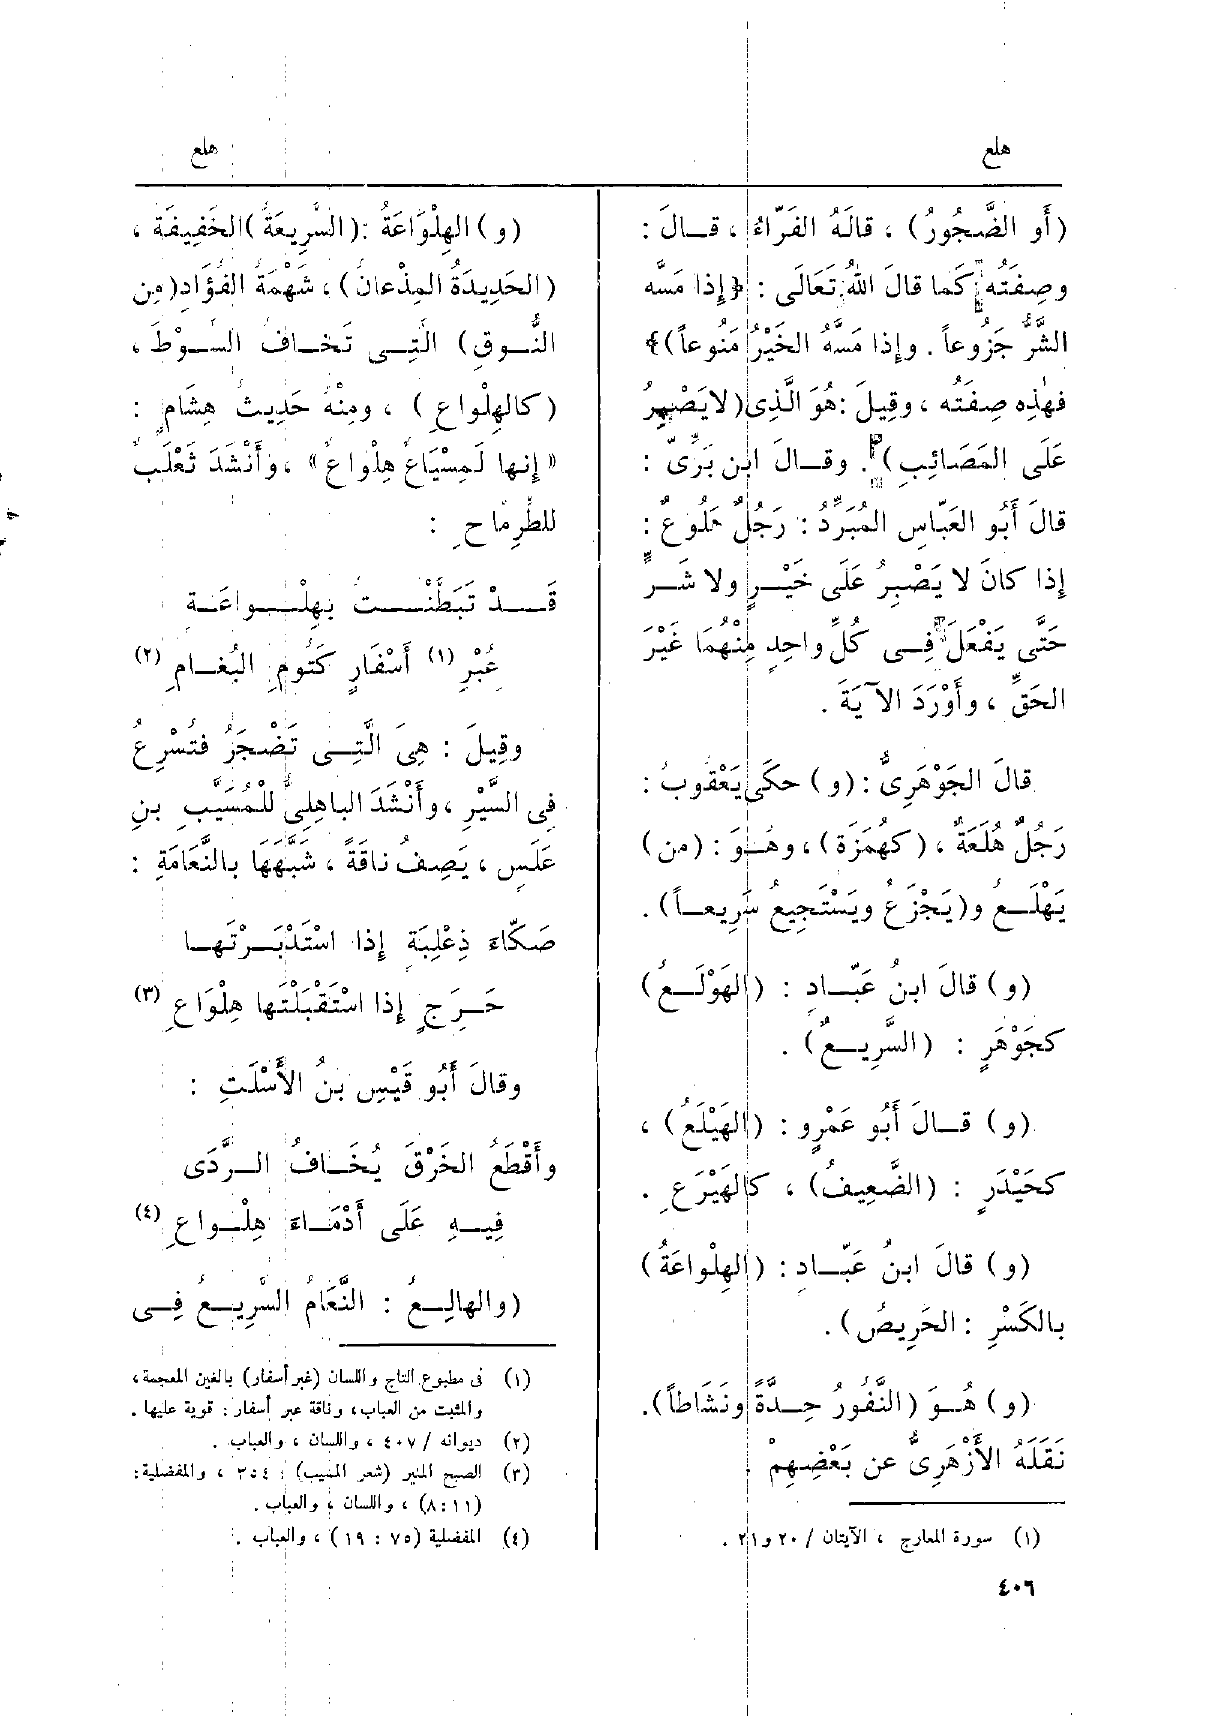 هلع
هلع
(أَو الضَّجُورُ) ، قالَهُ الفَرّاءُ ، قــالَ :
وصِفَتُه كَما قالَ اللهُ تَعَالَى : ﴿إِذا مَسَّه
الشَّرُّ جَزُوعاً . وإذا مَسَّهُ الخَيْرُ مَنُوعاً﴾
فهٰذِه صِفَتُه ، وقِيلَ : هُوَ الَّذِى (لا يَصْبِرُ
عَلَى المَصَائِبِ) . وقــالَ ابن بَرِّىّ :
قالَ أَبُو العَبّاسِ المُبَرِّدُ : رَجُلٌ هَلُوعٌ :
إذا كانَ لا يَصْبِرُ عَلَى خَيْــرٍ ولا شَــرٍّ
حَتَّى يَفْعَلَ فِــى كُلِّ واحِدٍ مِنْهُمَا غَيْرَ
الحَقِّ ، وأَوْرَدَ الآيَةَ .
قالَ الجَوْهَرِىُّ : (و) حكَى يَعْقُوبُ :
رَجُلٌ هُلَعَةٌ ، (كهُمَزَة) ، وهُــوَ : (من)
يَهْلَــعُ و(يَجْزَعُ ويَسْتَجِيعُ سَرِيعــاً) .
(و) قالَ ابنُ عَبّــادٍ : (الهَوْلَــعُ)
كجَوْهَرٍ : (السَّرِيــعُ) .
(و) قــالَ أَبُو عَمْرٍو : (الهَيْلَعُ) ،
كحَيْدَرٍ : (الضَّعِيفُ) ، كالهَيْرَعِ .
(و) قالَ ابنُ عَبّــادٍ : (الهِلْواعَةُ)
بالكَسْرِ : الحَرِيصُ) .
(و) هُــوَ (النَّفُورُ حِــدَّةً ونَشَاطاً) .
نَقَلَهُ الأَزْهَرِىُّ عن بَعْضِهِمْ .
(١) سورة المعارج ، الآيتان / ٢٠ و ٢١ .
(و) الهِلْوَاعَةُ : (السَّرِيعَةُ) الخَفِيفَة ،
(الحَدِيدَةُ المِذْعانُ) ، شَهْمَةُ الفُؤَادِ (مِن
النُّــوقِ) الَّتِــى تَخــافُ السَّــوْطَ ،
(كالهِلْواعِ) ، ومِنْهُ حَدِيثُ هِشَامٍ :
« إِنها لَمِسْيَاعٌ هِلْواعٌ » ، وأَنْشَدَ ثَعْلَبٌ
للطِّرِمّاحِ :
قَــدْ تَبَطَّنْــتُ بهِلْــواعَــةٍ
عُبْرِ (١) أَسْفَارٍ كَتُومِ البُغَــامِ (٢)
وقِيلَ : هِىَ الَّتِــى تَضْجَرُ فتُسْرِعُ
فِى السَّيْرِ ، وأَنْشَدَ الباهِلِىُّ للْمُسَيَّبِ بنِ
عَلَسٍ ، يَصِفُ ناقَةً ، شَبَّهَهَا بالنَّعَامَةِ :
صَكّاءَ ذِعْلِبَةٍ إِذا اسْتَدْبَــرْتَهــا
حَــرَجٍ إِذا اسْتَقْبَلْتَها هِلْوَاعِ (٣)
وقالَ أَبُو قَيْسِ بنُ الأَسْلَتِ :
وأَقْطَعُ الخَرْقَ يُخَــافُ الــرَّدَى
فِيــهِ عَلَى أَدْمَــاءَ هِلْــواعِ (٤)
(والهالِــعُ : النَّعَامُ السَّرِيــعُ فِــى
(١) فى مطبوع التاج واللسان (غبر أسفار) بالغين المعجمة ،
والمثبت من العباب ، وناقة عبر أسفار : قوية عليها .
(٢) ديوانه / ٤٠٧ ، واللسان ، والعباب .
(٣) الصبح المنير (شعر المسيب) : ٣٥٤ ، والمفضلية :
(١١ : ٨) ، واللسان ، والعباب .
(٤) المفضلية (٧٥ : ١٩) ، والعباب .
٤٠٦